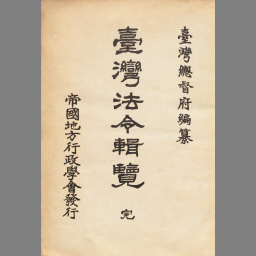 臺灣總督府編纂
臺灣法令輯覽 完
帝國地方行政學會發行